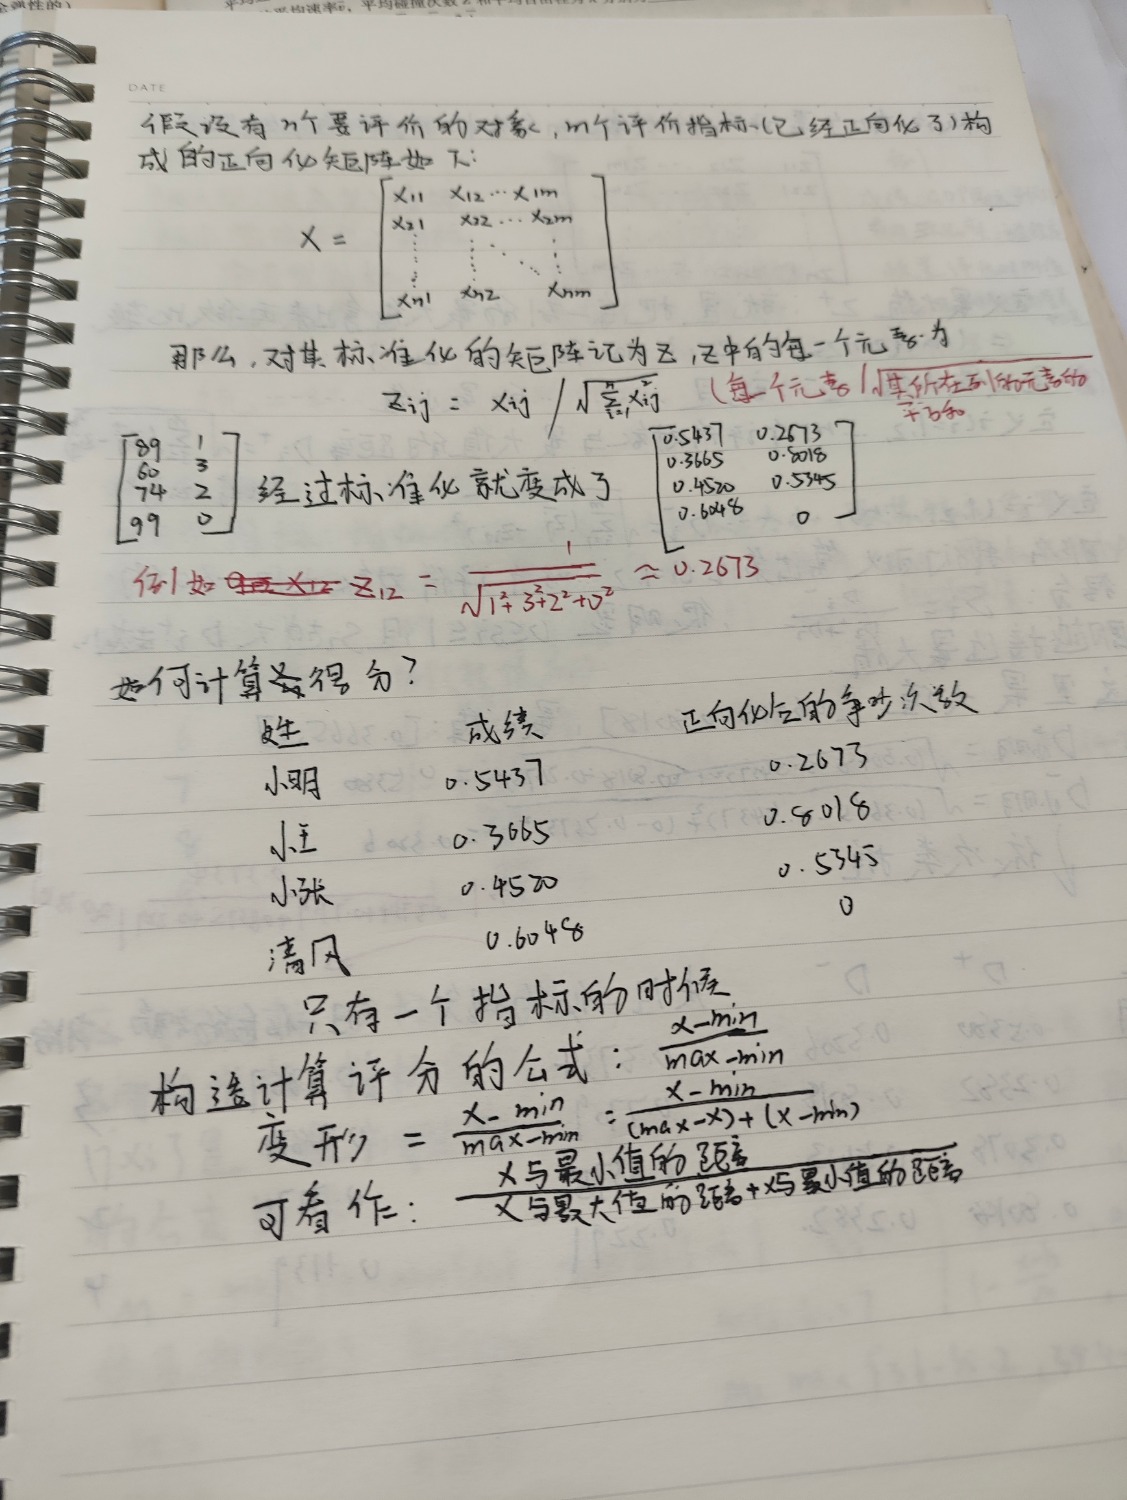 平均速率v，平均碰撞次数Z和平均自由程
DATE
假设有n个要评价的对象，m个评价指标（已经正向化了）构
成的正向化矩阵如下：
X = [x11 x12 ··· x1m
x21 x22 ··· x2m
xn1 xn2 xnm]
那么，对其标准化的矩阵记为Z，Z中的每一个元素为
Zij = xij / √(Σ(i=1..n) xij²) （每一个元素/√其所在列的元素的
平方和
[89 1
60 3
74 2
99 0] 经过标准化就变成了 [0.5437 0.2673
0.3665 0.8018
0.4520 0.5345
0.6048 0]
例如 Z12 = 1/√(1²+3²+2²+0²) ≈ 0.2673
如何计算得分？
姓 成绩 正向化后的争吵次数
小明 0.5437 0.2673
小王 0.3665 0.8018
小张 0.4520 0.5345
清风 0.6048 0
只有一个指标的时候
构造计算评分的公式： (x-min)/(max-min)
变形 = (x-min)/(max-min) = (x-min)/((max-x)+(x-min))
可看作： x与最小值的距离/(x与最大值的距离+x与最小值的距离)